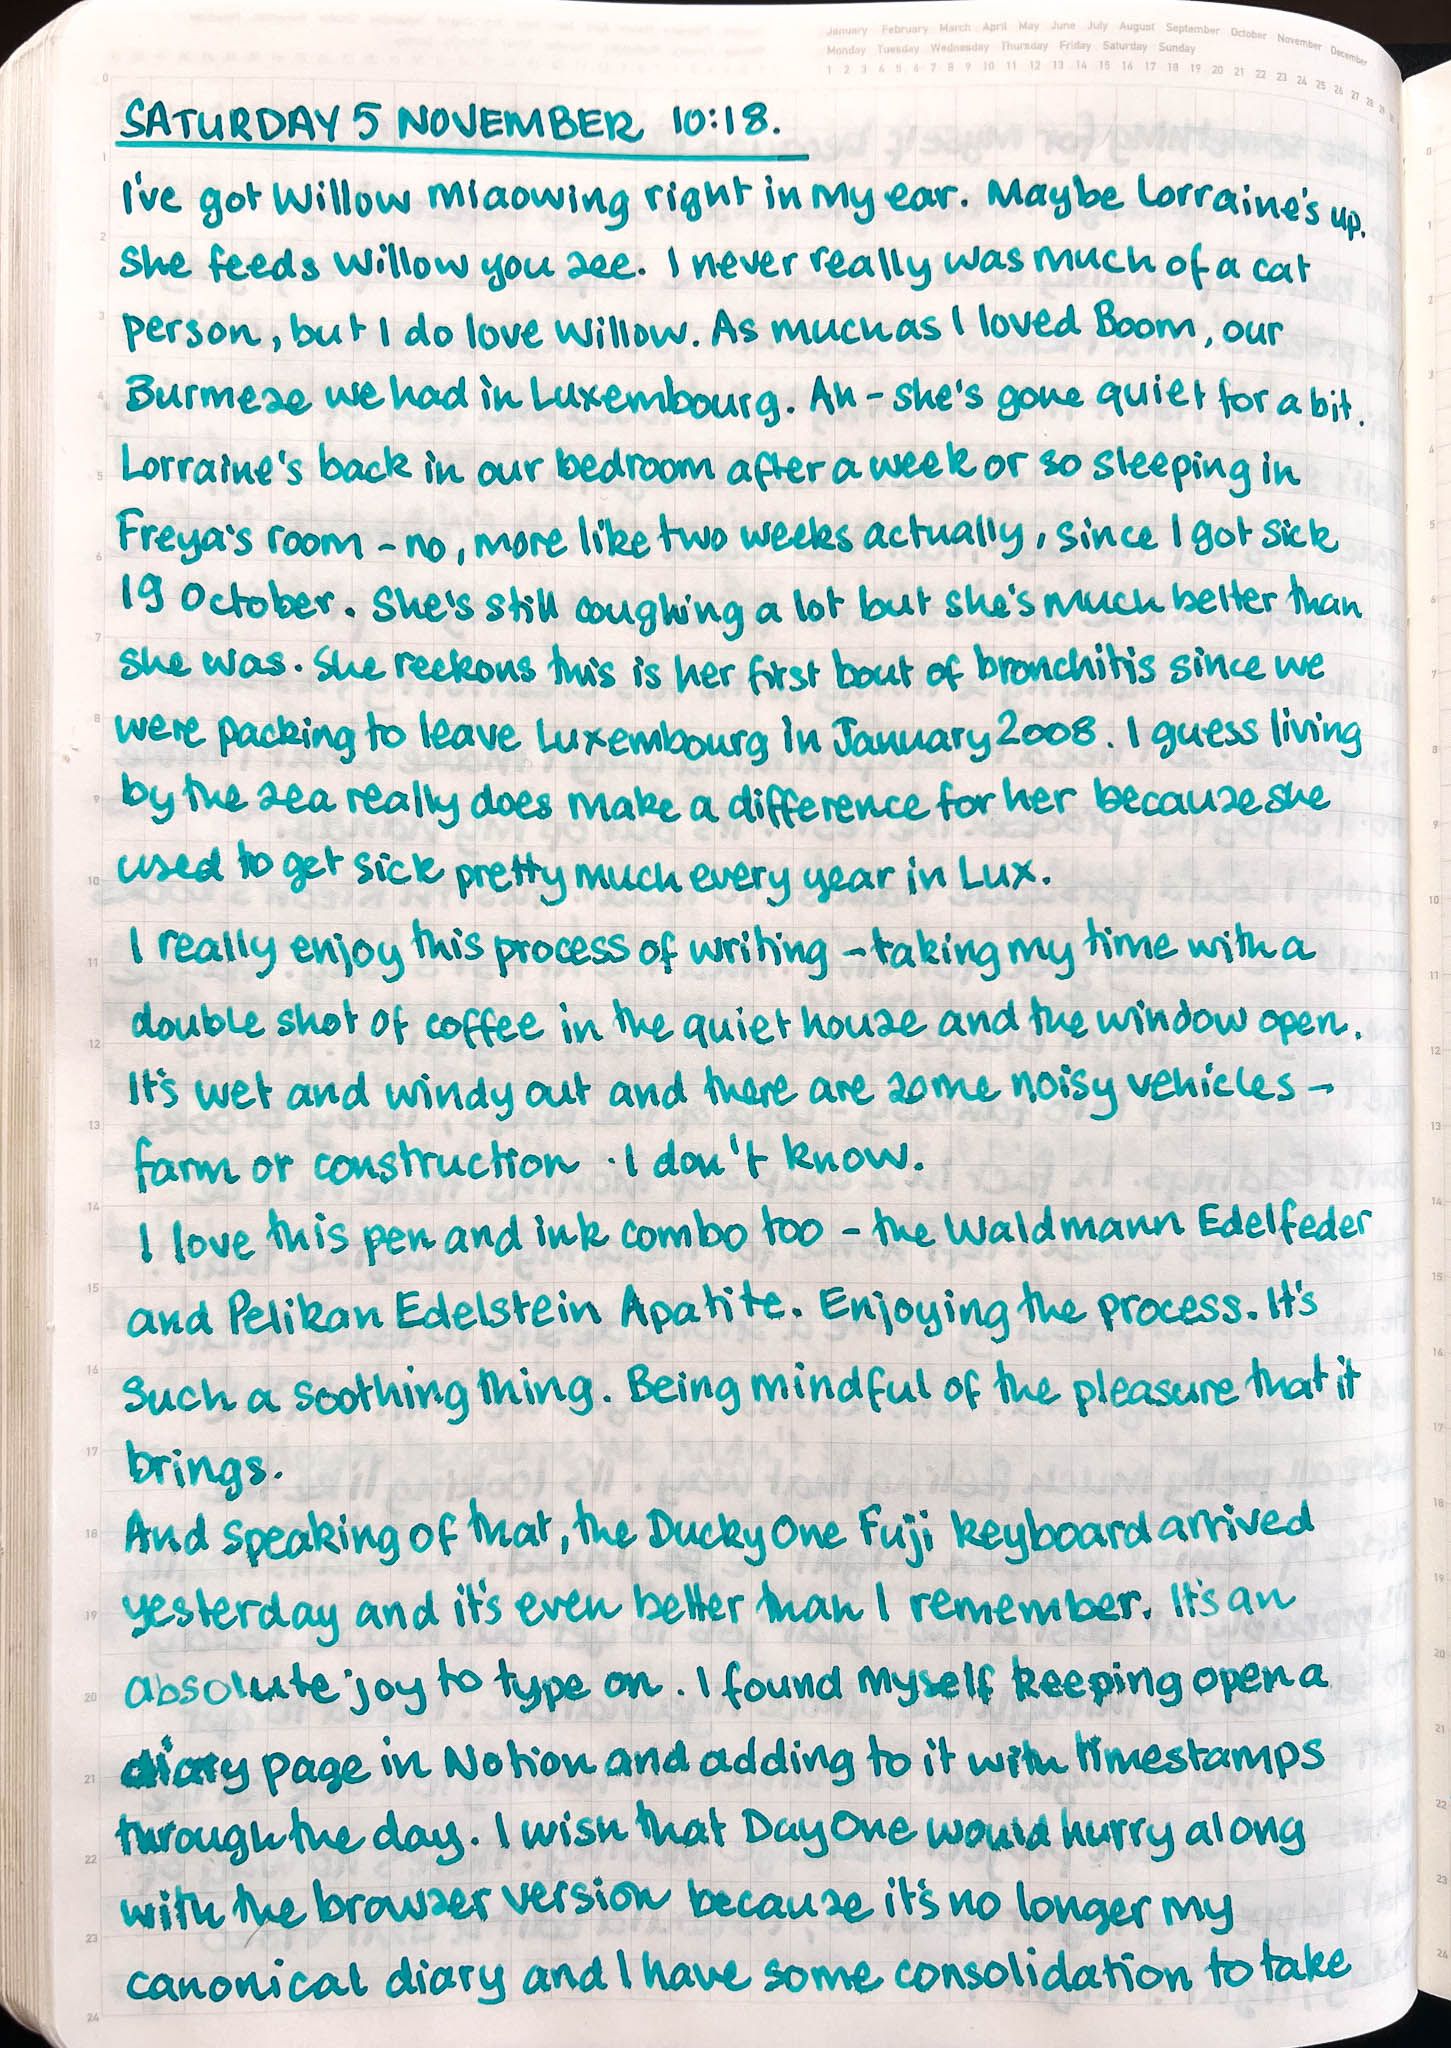 January February March April May June July August September October November December
Monday Tuesday Wednesday Thursday Friday Saturday Sunday
1 2 3 4 5 6 7 8 9 10 11 12 13 14 15 16 17 18 19 20 21 22 23 24 25 26 27 28
SATURDAY 5 NOVEMBER 10:18.
I've got Willow miaowing right in my ear. Maybe Lorraine's up.
She feeds Willow you see. I never really was much of a cat
person, but I do love Willow. As much as I loved Boom, our
Burmese we had in Luxembourg. Ah - she's gone quiet for a bit.
Lorraine's back in our bedroom after a week or so sleeping in
Freya's room - no, more like two weeks actually, since I got sick
19 October. She's still coughing a lot but she's much better than
she was. She reckons this is her first bout of bronchitis since we
were packing to leave Luxembourg in January 2008. I guess living
by the sea really does make a difference for her because she
used to get sick pretty much every year in Lux.
I really enjoy this process of writing - taking my time with a
double shot of coffee in the quiet house and the window open.
It's wet and windy out and there are some noisy vehicles -
farm or construction . I don't know.
I love this pen and ink combo too - the Waldmann Edelfeder
and Pelikan Edelstein Apatite. Enjoying the process. It's
such a soothing thing. Being mindful of the pleasure that it
brings.
And speaking of that, the Ducky One Fuji keyboard arrived
yesterday and it's even better than I remember. It's an
absolute joy to type on. I found myself keeping open a
diary page in Notion and adding to it with timestamps
through the day. I wish that Day One would hurry along
with the browser version because it's no longer my
canonical diary and I have some consolidation to take